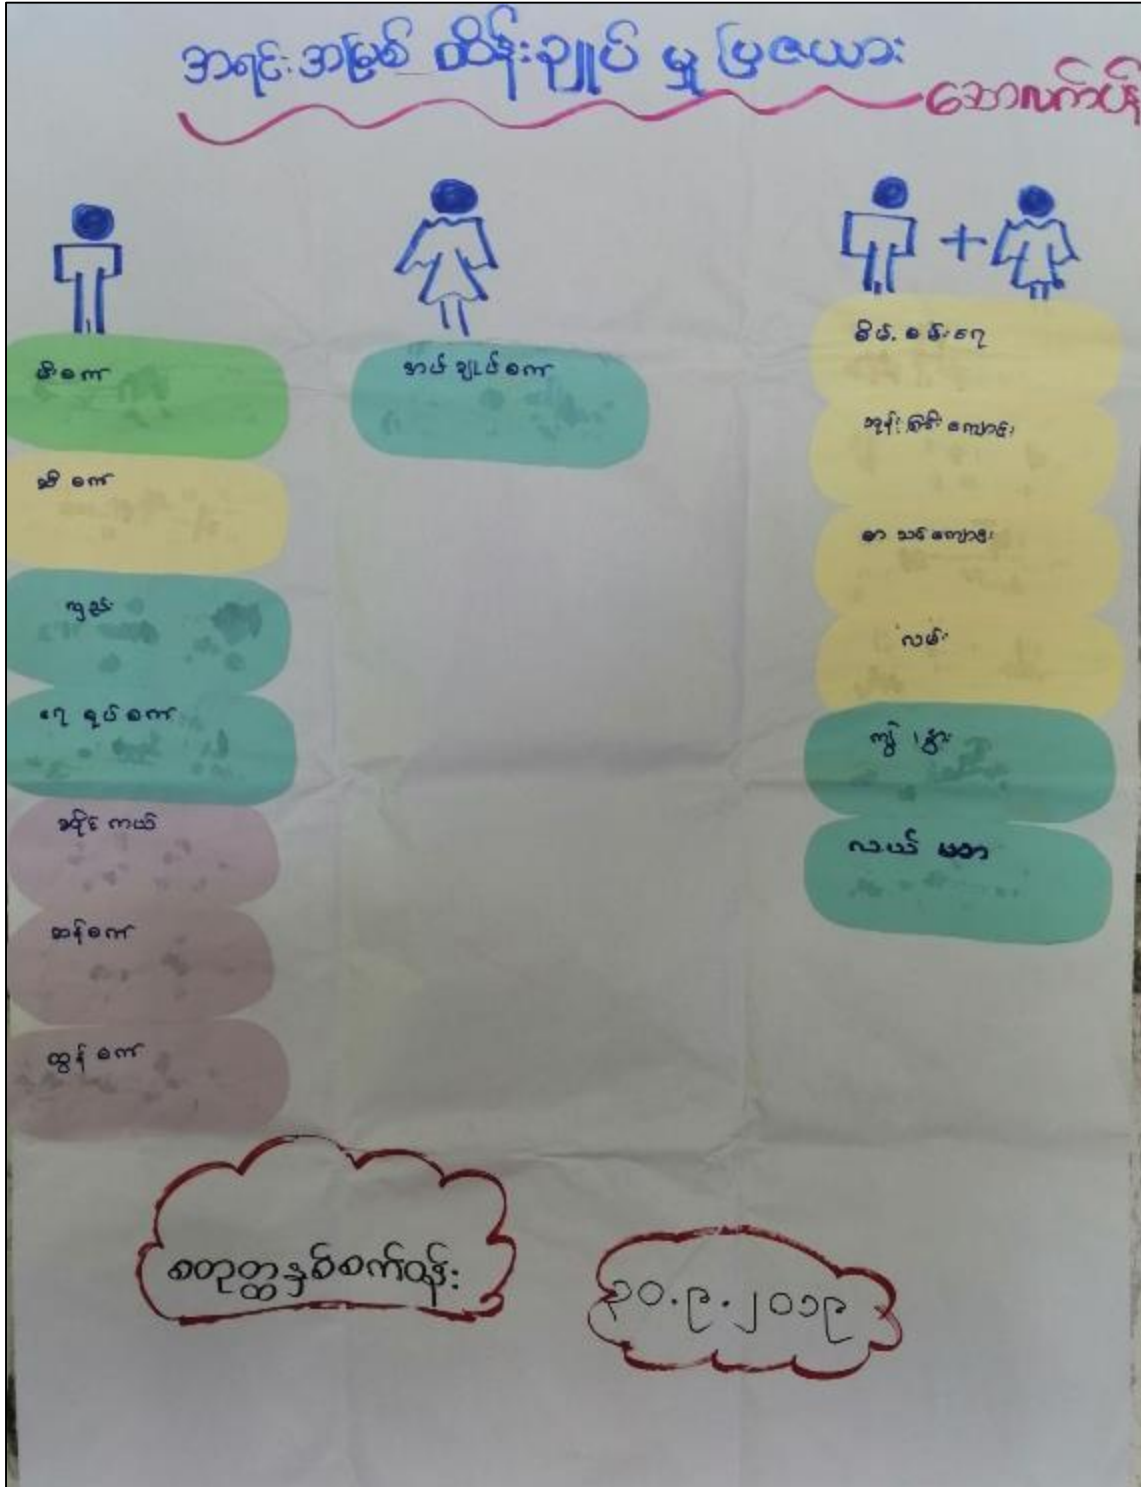 အရင်းအမြစ် ထိန်းချုပ် မှု ပြဇယား
သောလက်ပန်
မီးစက်
ဆီ စက်
ရေ စုပ်စက်
ဆိုင် ကယ်
ဆန်စက်
ထွန် စက်
အပ်ချုပ်စက်
စိမ့်စမ်းရေ
ဘုန်းကြီးကျောင်း
စာ သင်ကျောင်း
လမ်း
ကျွဲ ၊ နွား
လယ် မြေ
စတုတ္ထနှစ်စက်ဝန်း
၃၀.၉.၂၀၁၉